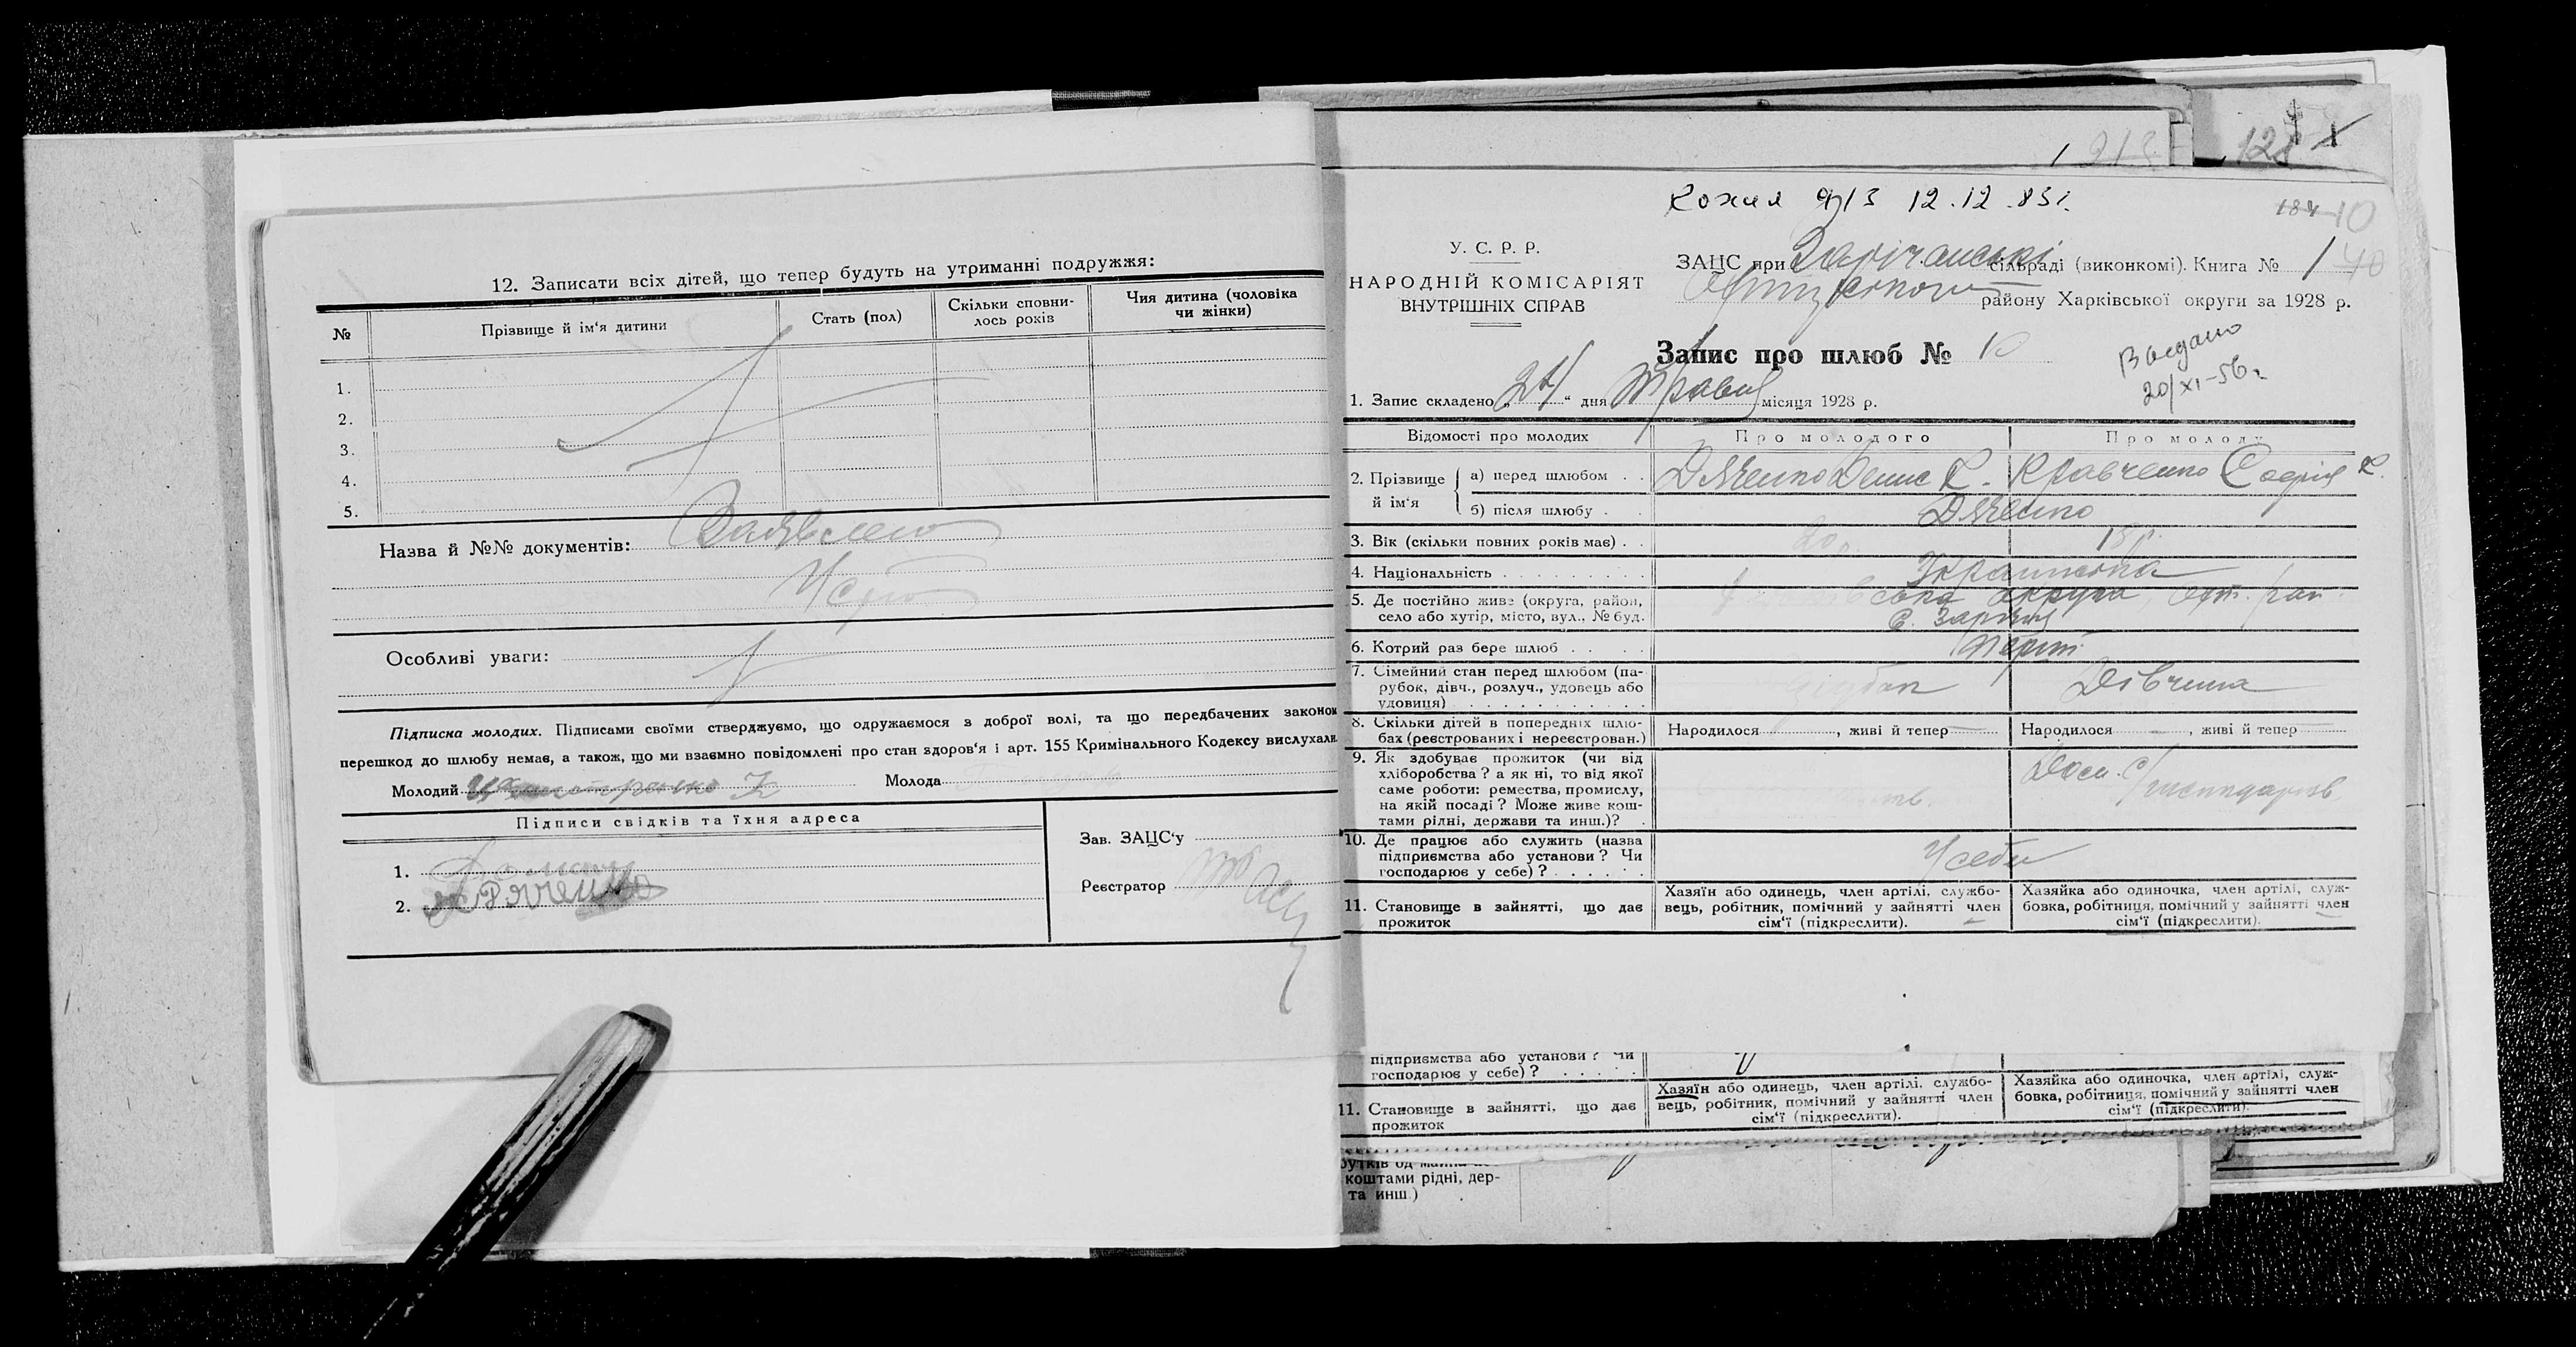 12. Записати всіх дітей, що тепер будуть на утриманні подружжя:
№
Прізвище й ім'я дитини
Стать (пол)
Скільки сповни-
лось років
Чия дитина (чоловіка
чи жінки)
1.
2.
3.
4.
5.
Назва й №№ документів:
Особливі уваги:
Підписка молодих. Підписами своїми стверджуємо, що одружаємося з доброї волі, та що передбачених законом
перешкод до шлюбу немає, а також, що ми взаємно повідомлені про стан здоров'я і арт. 155 Кримінального Кодексу вислухали.
Молодий
Молода
Підписи свідків та їхня адреса
1.
2.
Зав. ЗАЦС'у
Реєстратор
128
Копия ф13 12.12.83г.
184 10
У. С. Р. Р.
НАРОДНІЙ КОМІСАРІЯТ
ВНУТРІШНІХ СПРАВ
ЗАЦС при Зарічанські сільраді (виконкомі). Книга № 1 40
району Харківської округи за 1928 р.
Запис про шлюб № 10
Выдано
20/XI-56г
1. Запис складено „24“ дня Травня місяця 1928 р.
Відомості про молодих
Про молодого
Про молоду
2. Прізвище й ім'я
а) перед шлюбом . .
Дяченко Денис К.
Кравченко Софія К.
б) після шлюбу . .
Дяченко
3. Вік (скільки повних років має) . .
20р.
18р.
4. Національність . . . . . . . . .
Українська
5. Де постійно живе (округа, район,
село або хутір, місто, вул., № буд.
ська округа, Охт. рай.
с. Заріччя
6. Котрий раз бере шлюб . . . .
Перший
7. Сімейний стан перед шлюбом (па-
рубок, дівч., розлуч., удовець або
удовиця) . . . . . . . . . .
Парубок
Дівчина
8. Скільки дітей в попередніх шлю-
бах (реєстрованих і нереєстрован.)
Народилося , живі й тепер
Народилося , живі й тепер
9. Як здобуває прожиток (чи від
хліборобства? а як ні, то від якої
саме роботи: ремества, промислу,
на якій посаді? Може живе кош-
тами рідні, держави та инш.)? .
10. Де працює або служить (назва
підприємства або установи? Чи
господарює у себе)? . . . . . .
У себе
11. Становище в зайнятті, що дає
прожиток
Хазяїн або одинець, член артілі, службо-
вець, робітник, помічний у зайнятті член
сім'ї (підкреслити).
Хазяйка або одиночка, член артілі, служ-
бовка, робітниця, помічний у зайнятті член
сім'ї (підкреслити).
підприємства або установи? Чи
господарює у себе)? . . . . .
11. Становище в зайнятті, що дає
прожиток
Хазяїн або одинець, член артілі, службо-
вець, робітник, помічний у зайнятті член
сім'ї (підкреслити).
Хазяйка або одиночка, член артілі, служ-
бовка, робітниця, помічний у зайнятті член
сім'ї (підкреслити).
коштами рідні, дер-
та инш.)